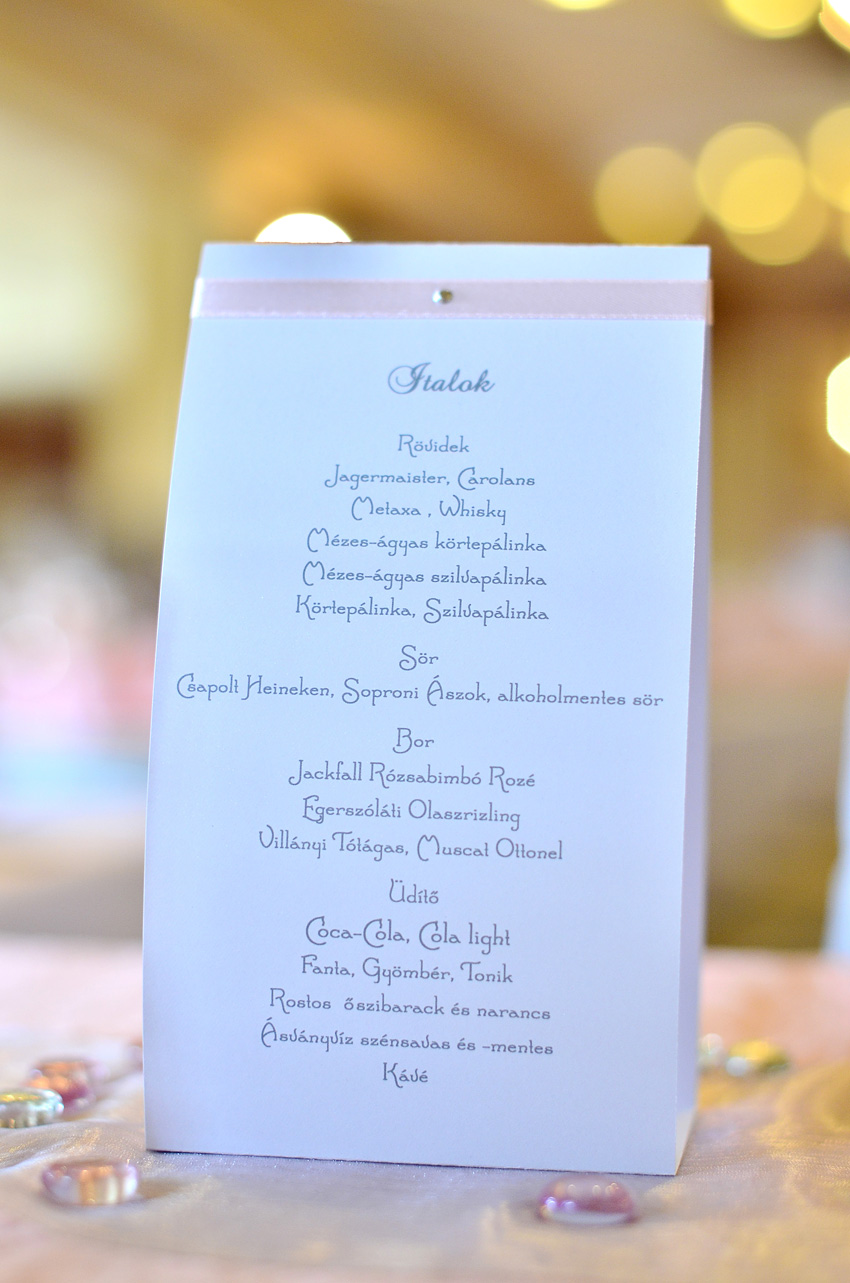 Italok
Rövidek
Jagermaister, Carolans
Metaxa , Whisky
Mézes-ágyas körtepálinka
Mézes-ágyas szilvapálinka
Körtepálinka, Szilvapálinka
Sör
Csapolt Heineken, Soproni Ászok, alkoholmentes sör
Bor
Jackfall Rózsabimbó Rozé
Egerszóláti Olaszrizling
Villányi Tótágas, Muscat Ottonel
Üdítő
Coca-Cola, Cola light
Fanta, Gyömbér, Tonik
Rostos őszibarack és narancs
Ásványvíz szénsavas és -mentes
Kávé